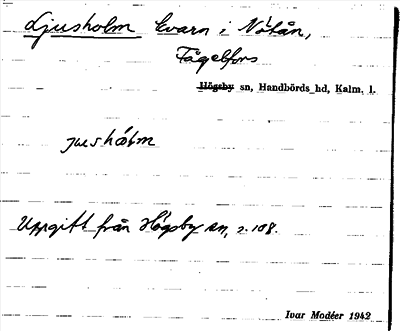 Ljusholm kvarn i Nötån,
Fågelfors
Högsby sn, Handbörds hd, Kalm. l.
jusholm
Uppgift från Högsby sn, s. 108.
Ivar Modéer 1942